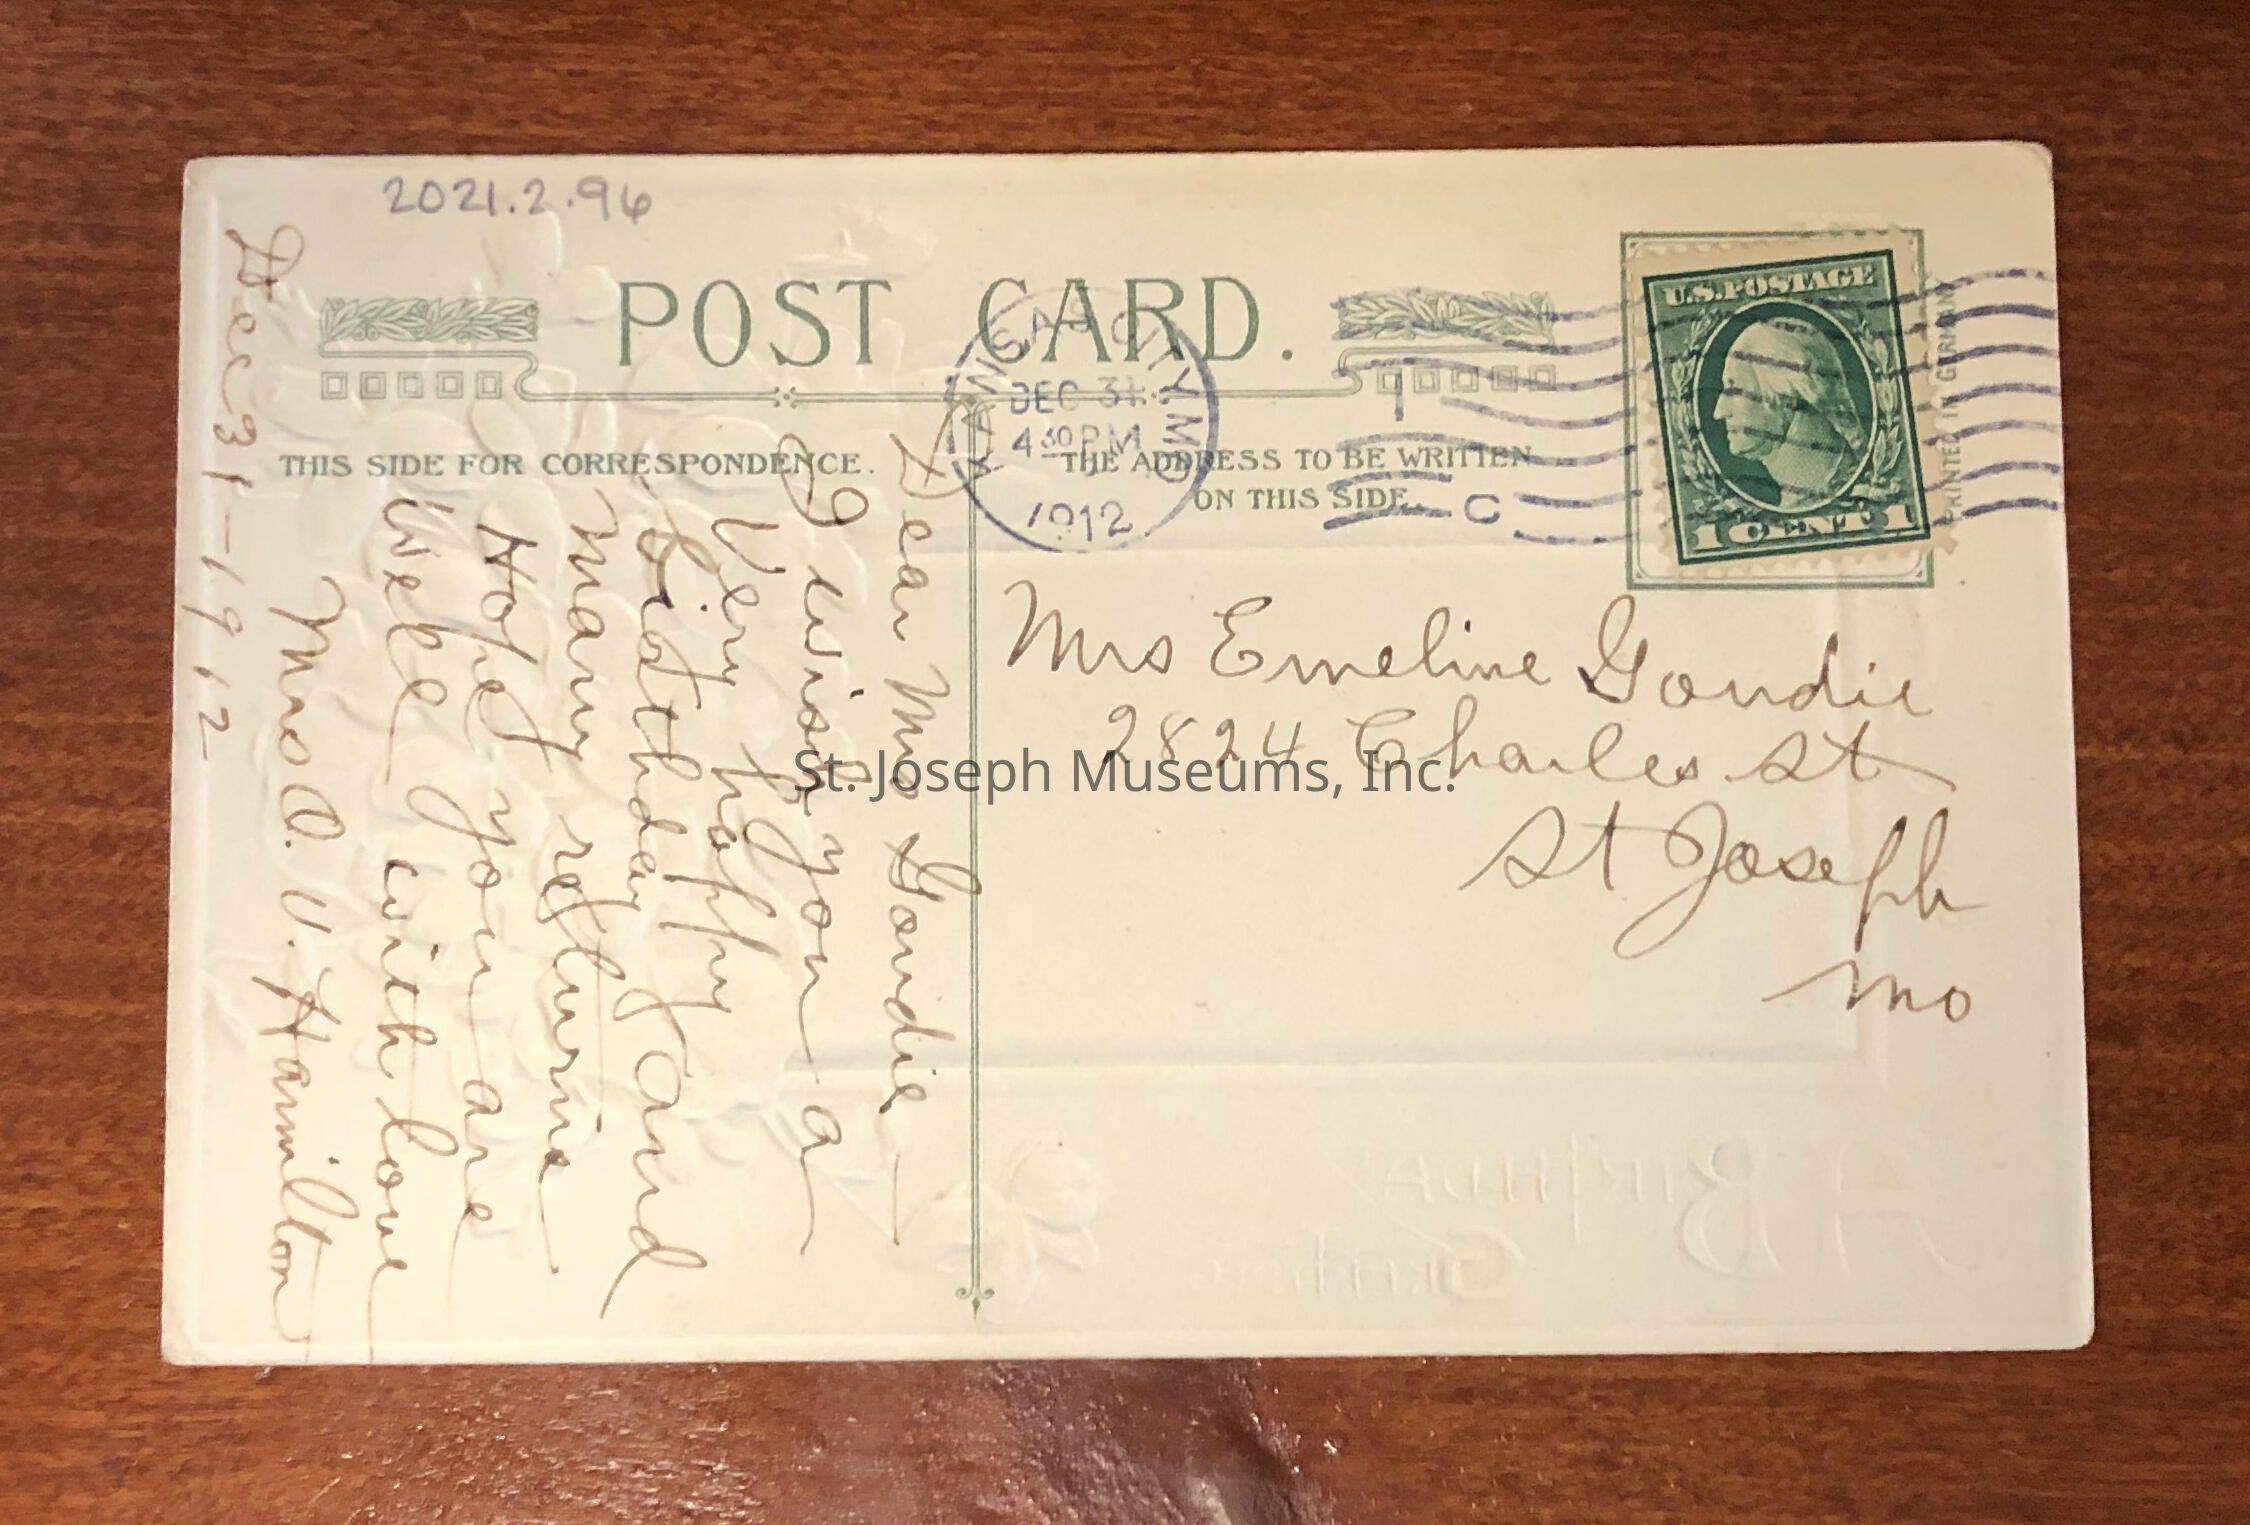 2021.2.96
POST CARD.
KANSAS CITY, MO
DEC 31
4 30 P.M.
1912
C
U.S. POSTAGE
1 CENT 1
PRINTED IN GERMANY
THIS SIDE FOR CORRESPONDENCE.
THE ADDRESS TO BE WRITTEN
ON THIS SIDE.
Dec 31-1912
Dear Mrs Goudie
I wish you a
Very happy
birthday and
many returns
Hope you are
well with love
Mrs O. V. Hamilton
Mrs Emeline Goudie
2824 Charles St
St Joseph
Mo
St. Joseph Museums, Inc.
A BIRTHDAY
Greeting